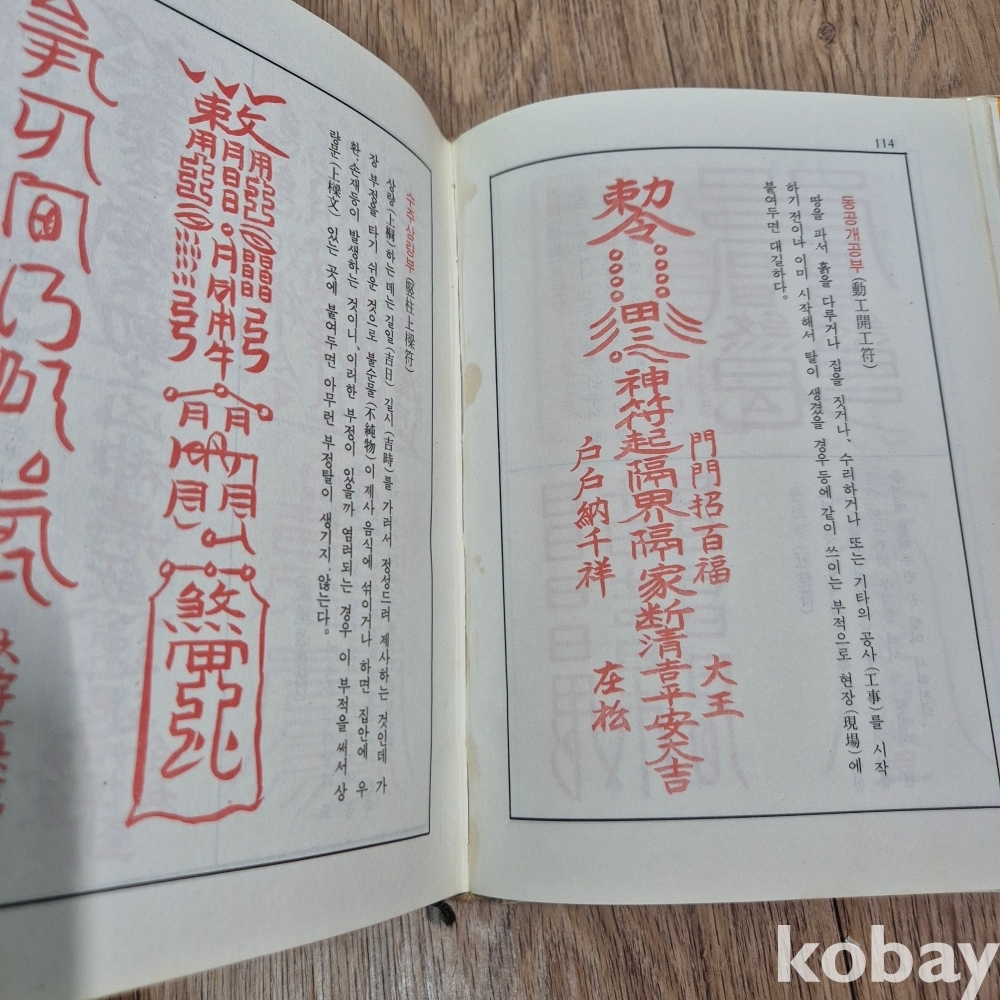 114
동공개공부(動工開工符)
땅을 파서 흙을 다루거나 집을 짓거나、수리하거나 또는 기타의 공사(工事)를 시작
하기 전이나 이미 시작해서 탈이 생겼을 경우 등에 같이 쓰이는 부적으로 현장(現場)에
붙여두면 대길하다。
門門招百福
大王
勅令
神符起隔界隔家断清吉平安大吉
戶戶納千祥
庄松
수주상량부(竪柱上樑符)
상량(上樑)하는데는 길일(吉日) 길시(吉時)를 가려서 정성드려 제사하는 것인데 가
장 부정을 타기 쉬운 것으로 불순물(不純物)이 제사 음식에 섞이거나 하면 집안에 우
환·손재등이 발생하는 것이니、이러한 부정이 있을까 염려되는 경우 이 부적을 써서 상
량문(上樑文) 있는 곳에 붙여두면 아무런 부정탈이 생기지 않는다。
煞
kobay